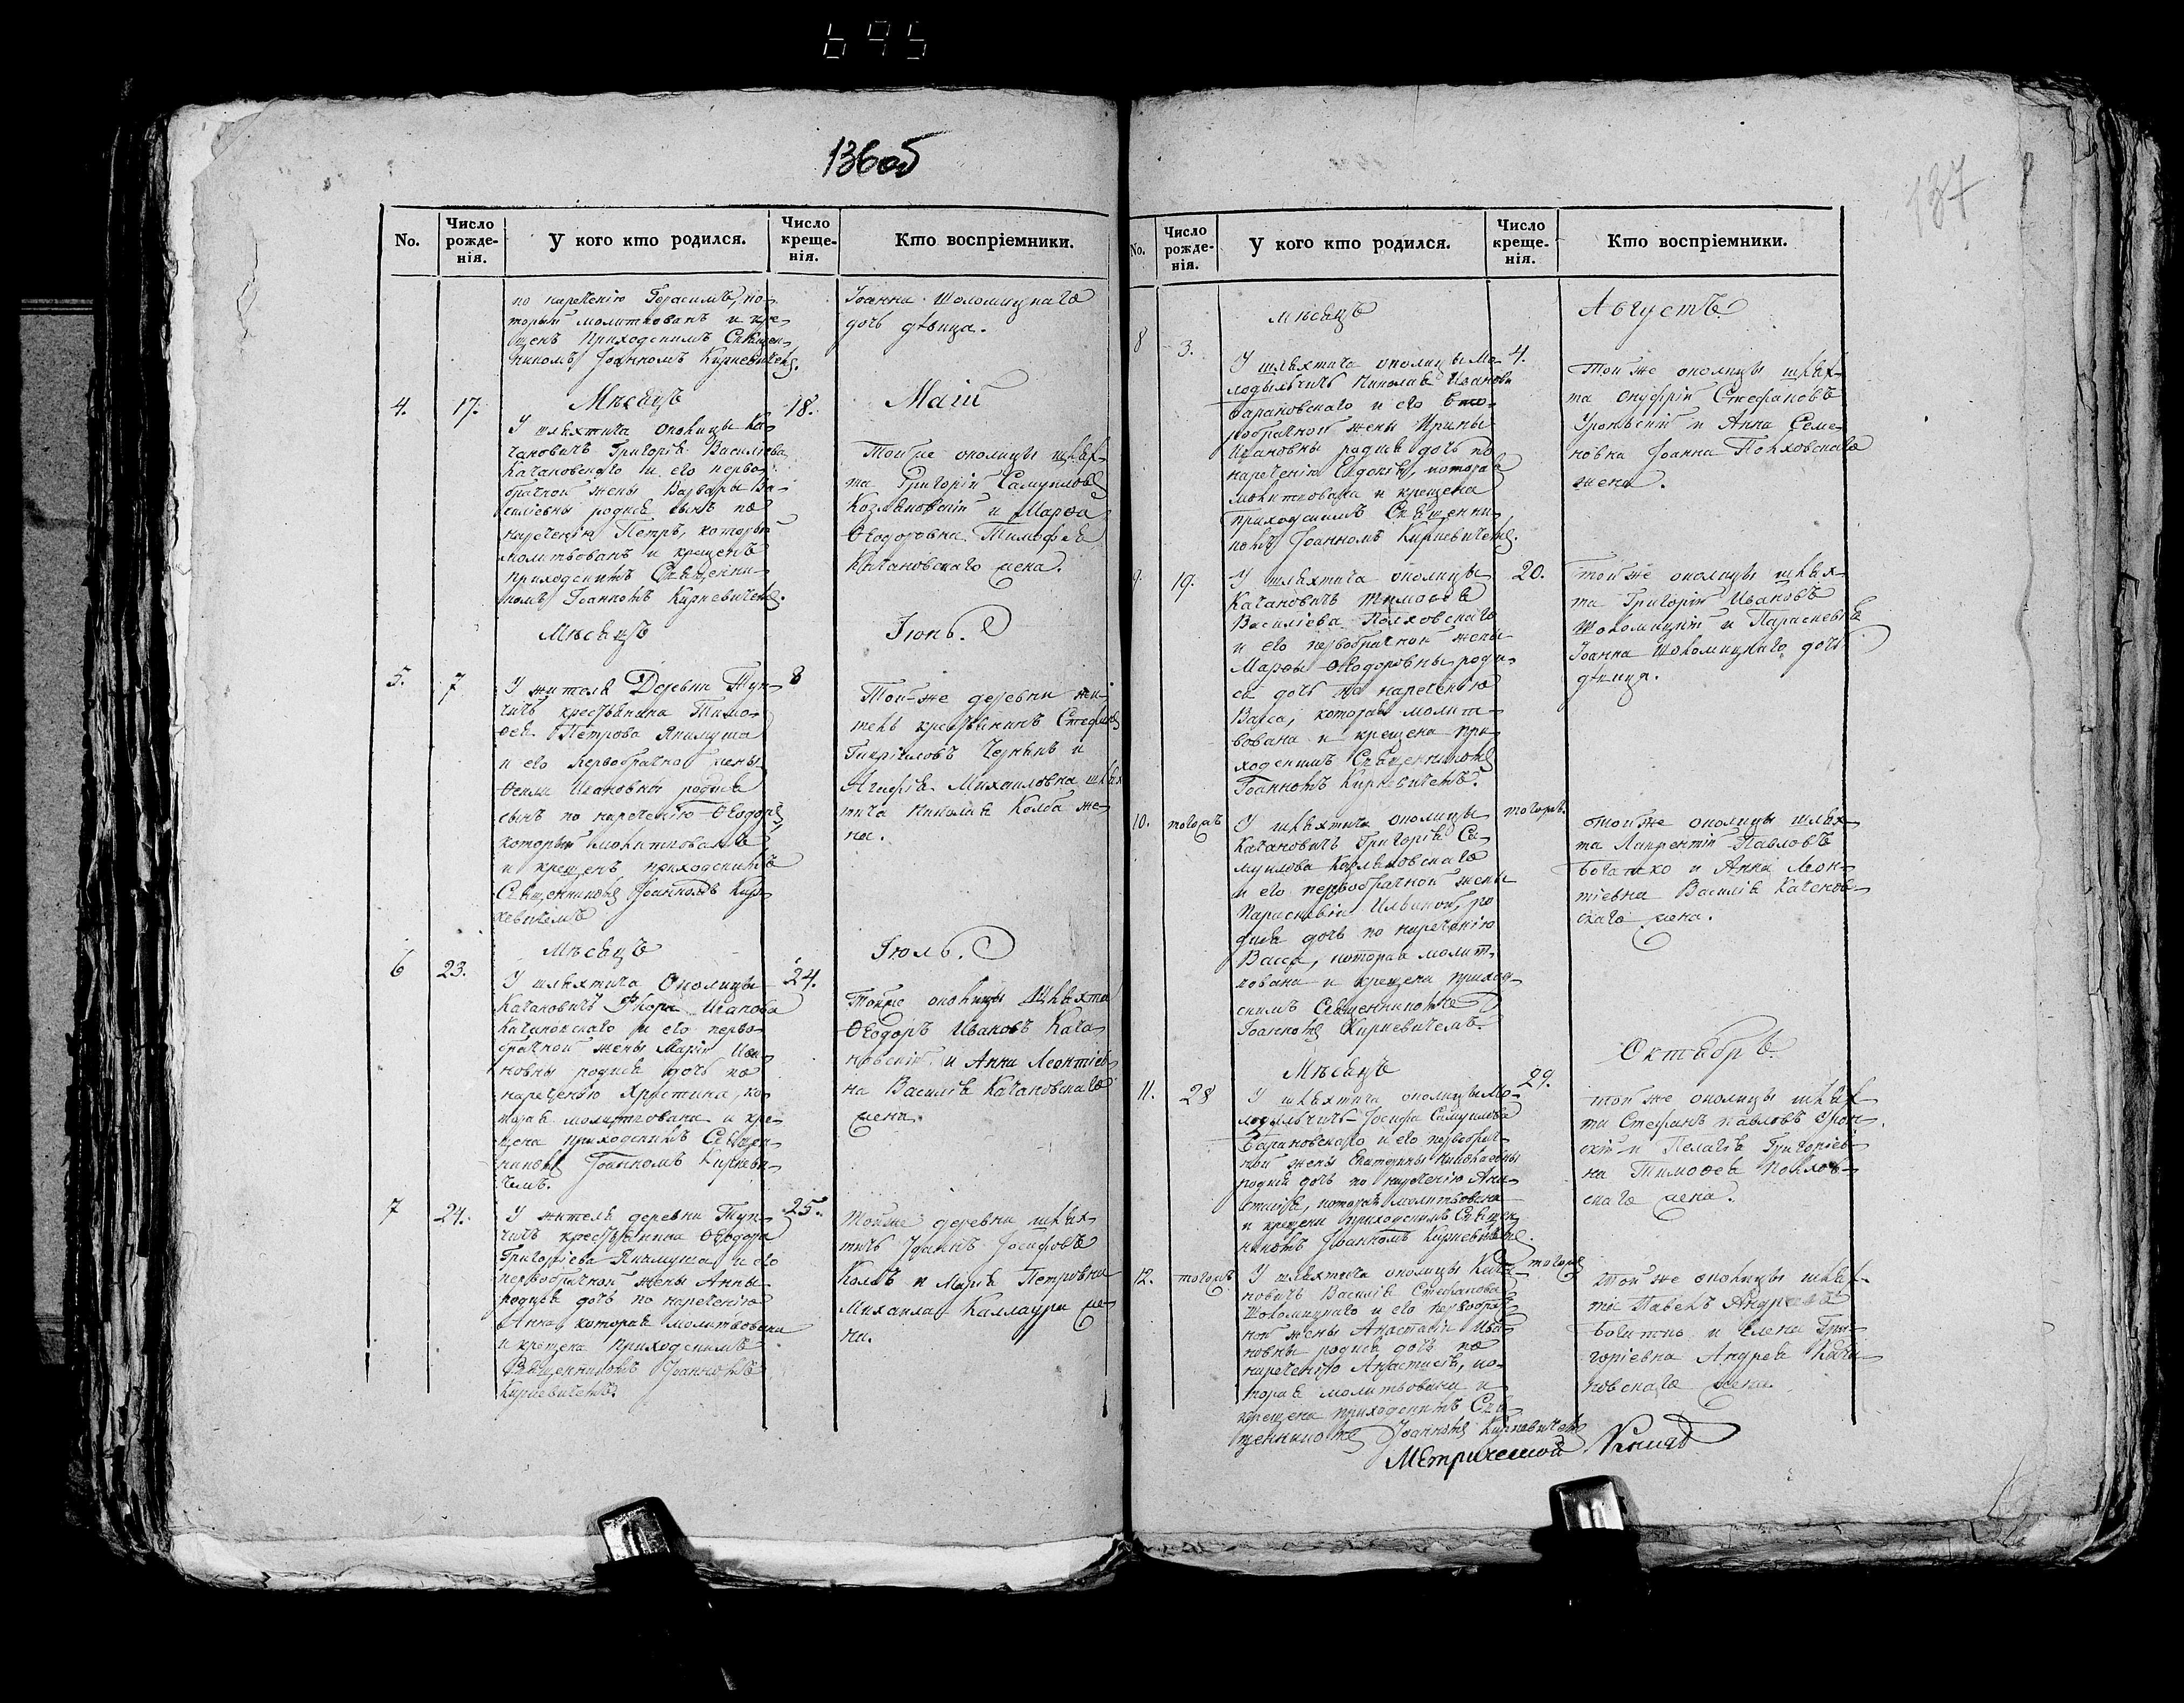 136об
No.
Число рожде-нія.
У кого кто родился.
Число креще-нія.
Кто воспріемники.
по нареченію Герасимъ, ко-
торый молитвованъ и кре-
щенъ приходскимъ Священ-
никомъ Іоанномъ Кирневичемъ.
Іоанна Шоломицкаго
дочь дѣвица.
Мѣсяцъ
Маій
4.
17.
18.
У шляхтича околицы Ка-
чановичъ Григорія Василіева
Качановскаго и его перво-
брачной жены Варвары Ва-
силіевны родися сынъ по
нареченію Петръ, которой
молитвованъ и крещенъ
приходскимъ Священни-
комъ Іоанномъ Кирневичемъ.
Той же околицы шлях-
та Григорій Самуиловъ
Козляковскій и Марѳа
Ѳеодоровна Тимофея
Качановскаго жена.
Мѣсяцъ
Іюнь.
5.
7
8
У жителя Деревни Туп-
чичъ крестьянина Тимо-
ѳея Петрова Якимуша
и его первобрачной жены
Ѳеклы Ивановны родися
сынъ по нареченію Ѳеодоръ,
который молитвованъ
и крещенъ приходскимъ
Священникомъ Іоанномъ Кир-
невичемъ
Той же деревни жи-
тель крестьянинъ Стефанъ
Гавріиловъ и
Агафія Михаиловна шлях
тича Николая Колба же-
на.
Мѣсяцъ
Іюль.
6
23.
24.
У шляхтича Околицы
Качановичъ Флора Иванова
Качановскаго и его перво-
брачной жены Маріи Ива-
новны родися дочь по
нареченію Христина, ко-
торая молитвована и кре-
щена приходскимъ Священ-
никомъ Іоанномъ Кирневи-
чемъ.
Той же околицы Шляхта
Ѳеодоръ Ивановъ Кача-
новскій и Анна Леонтіев-
на Василія Качановскаго
жена.
7
24.
25.
У жителя деревни Туп-
чичъ крестьянина Ѳеодора
Григоріева Якимуша и его
первобрачной жены Анны
родися дочь по нареченію
Анна которая молитвована
и крещена приходскимъ
Священникомъ Іоанномъ
Кирневичемъ.
Той же деревни шлях-
тичъ Іоаннъ Іосифовъ
Колбъ и Марія Петровна
Михаила Каллаура же-
на.
137
No.
Число рожде-нія.
У кого кто родился.
Число креще-нія.
Кто воспріемники.
мѣсяцъ
Августъ.
8
3.
4.
У шляхтича околицы Мо-
лодыльчичъ Николая Иванова
Барановскаго и его вто-
робрачной жены Ирины
Ивановны родися дочь по
нареченію Евдокія, которая
молитвована и крещена
приходскимъ Священни-
комъ Іоанномъ Кирневичемъ.
Той же околицы шлях-
та Онуфрій Стефановъ
и Анна Семе-
новна Іоанна Полховскаго
жена.
9.
19.
20.
У шляхтича околицы
Качановичъ Тимоѳея
Василіева Полховскаго
и его первобрачной жены
Марѳы Ѳеодоровны роди-
ся дочь по нареченію
Васса, которая молит-
вована и крещена при-
ходскимъ Священникомъ
Іоанномъ Кирневичемъ.
той же околицы шлях-
та Григорій Ивановъ
Шоломицкій и Параскевія
Іоанна Шоломицкаго дочь
дѣвица.
10.
тогожъ
тогожъ
У шляхтича околицы
Качановичъ Григорія Са-
муилова Козляковскаго
и его первобрачной жены
Параскевіи Ильиной, ро
дися дочь по нареченію
Васса, которая молит-
вована и крещена приход-
скимъ Священникомъ
Іоанномъ Кирневичемъ.
той же околицы шлях-
та Лаврентій Павловъ
Богатко и Анна Леон-
тіевна Василія Качанов-
скаго жена.
Мѣсяцъ
Октябрь.
11.
28
29.
У шляхтича околицы Мо-
лодыльчичъ Іосифа Самуилова
Барановскаго и его первобрач-
ной жены Екатерины Николаевны
родися дочь по нареченію Ана-
стасія, которая молитвована
и крещена приходскимъ Священ
никомъ Іоанномъ Кирневичемъ.
той же околицы шлях
та Стефанъ Павловъ
и Пелагія Григоріев-
на Тимоѳея Полхов-
скаго жена.
12.
тогожъ
тогожъ
У шляхтича околицы Кача-
новичъ Василія Стефанова
Шоломицкаго и его первобрач-
ной жены Анастасіи Ива-
новны родися дочь по
нареченію Анастасія, ко-
торая молитвована и
крещена приходскимъ Свя
щенникомъ Іоанномъ Кирневичемъ
той же околицы шлях-
та Павелъ Андреевъ
Богатко и Елена Гри-
горіевна Андрея Кача-
новскаго жена.
Метрической